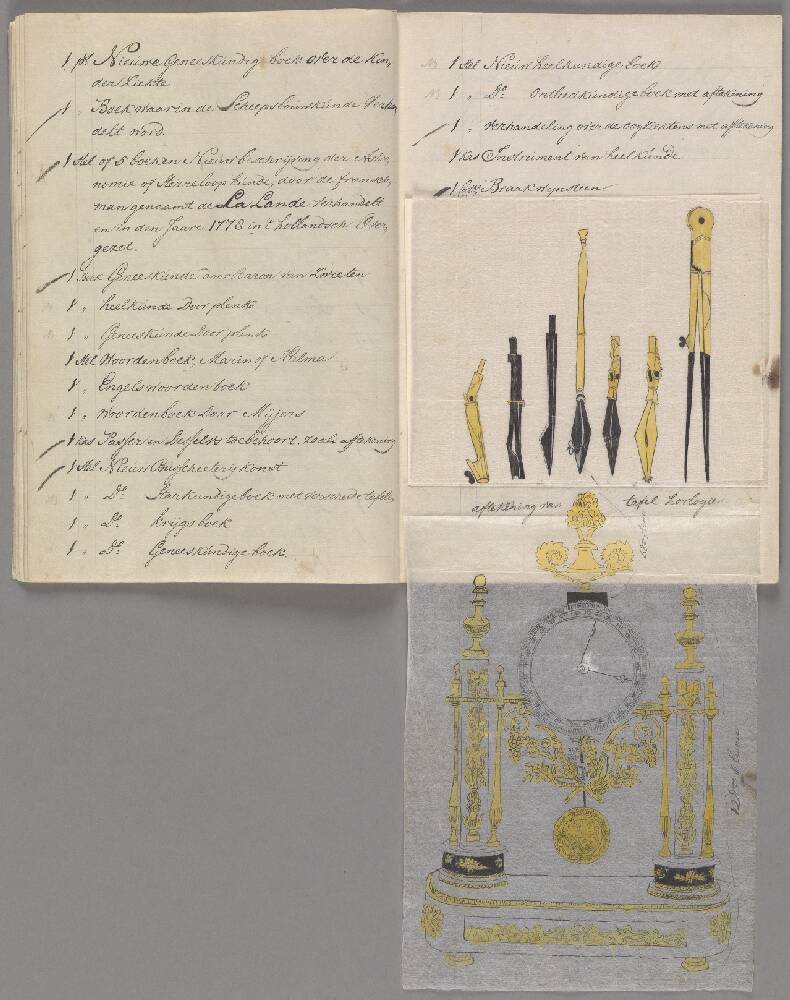 1 pl. Nieuwe Geneeskundig boek over de kin,
der Ziekte
1 „ Boek waarin de Scheepsbouwkunde Verhan,
delt word.
1 Stel of 5 boeken Nieuw beschrijving der Astro,
nomie of Sterreloop kunde, door de fransch,
man genaamt de La Lande verhandelt
en in den Jaare 1773 in 't hollandsch Over,
gezet.
1 Boek Geneeskunde van Baron van Swieten
1 „ heelkunde Door plenk
1 „ Geneeskunde Door plenk
1 Stel Woordenboek, Marin of Halma
1 „ Engels woordenboek
1 „ woordenboek Door Meijers
1 kas Passer en toebehoort, zoals aftekening
1 Stel Nieuw konst
1 „ Do. Sterkundige boek met verscheide tafels
1 „ Do. krijgs boek
1 „ Do. Geneeskundige boek.
1 Stel Nieuw heelkundige boek
1 „ Do. Ontleedkundige boek met aftekening
1 „ verhandeling over de oogziektens met aftekening
1 kas Instrument van heelkunde
1 Braakwynsteen
aftekening van tafel horlogie